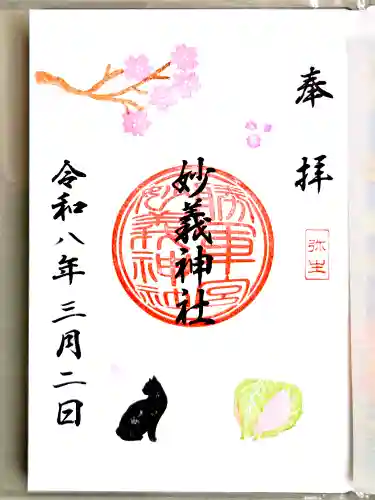 奉拝
弥生
妙義神社
令和八年三月二日